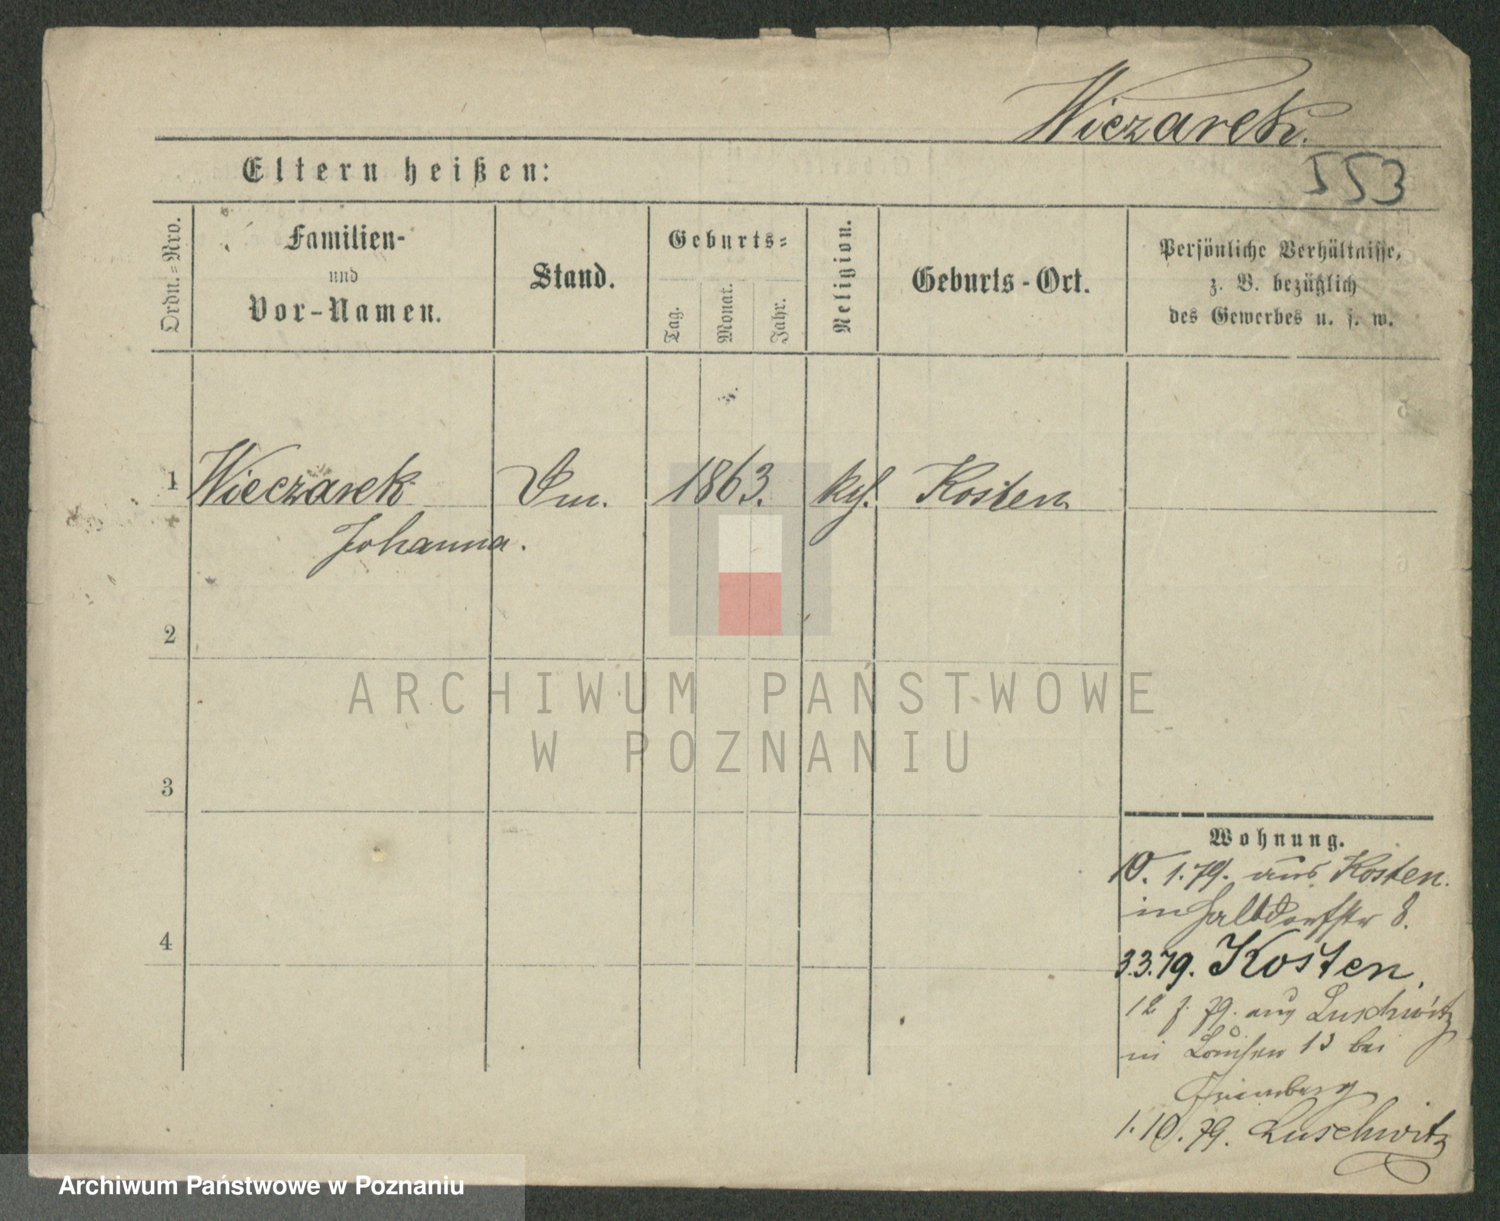 Wiczarek.
553
Eltern heißen:
Ordn.=Nro.
Familien-
und
Vor-Namen.
Stand.
Geburts=
Tag.
Monat.
Jahr.
Religion.
Geburts-Ort.
Persönliche Verhältnisse,
z. B. bezüglich
des Gewerbes u. s. w.
1 Wieczarek 1863. Kosten
Johanna.
2
3
4
Wohnung.
10. 1. 79. aus Kosten.
in 8.
3.3.79. Kosten.
12 79. aus Luschwitz
in 13 bei
1. 10. 79. Luschwitz
ARCHIWUM PAŃSTWOWE
W POZNANIU
Archiwum Państwowe w Poznaniu